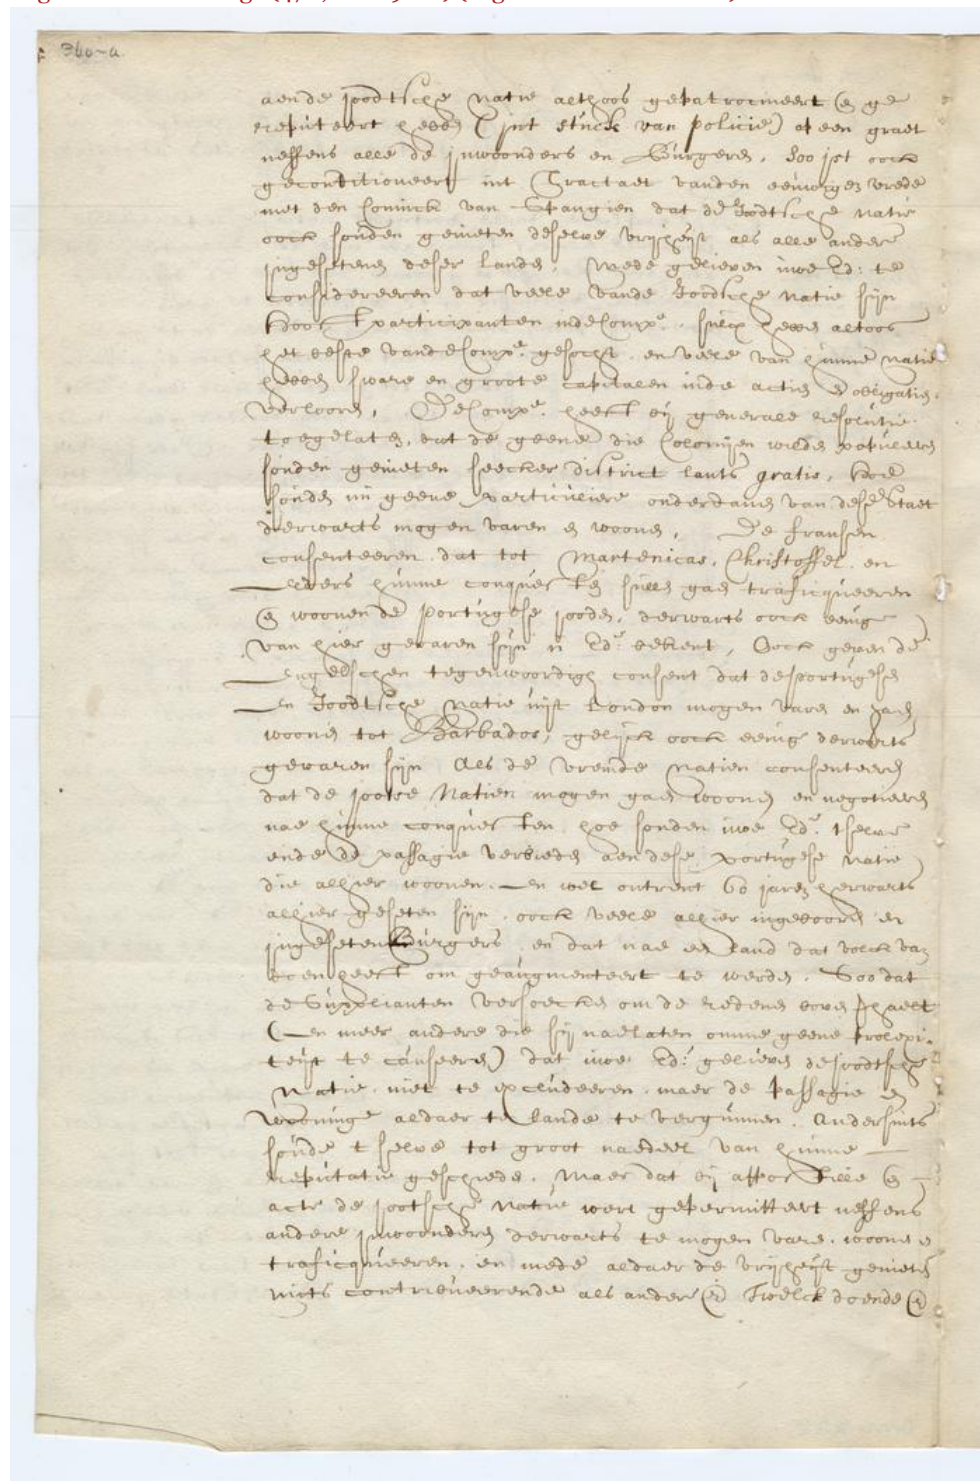 360-a
aende joodtsche natie althoos gepatrocineert en ge
reputeert hebben (int stuck van policie) op een graet
neffens alle de inwoonders en Burgeren, Soo ist oock
geconditioneert int Tractaet vanden eewigen vrede
met den Coninck van Spangien dat de Joodtsche natie
oock souden genieten deselve vrijheijt als alle andere
ingesetenen deser landen; Mede gelieven uwe Ed: te
considereeren dat veele vande Joodtsche natie sijn
hooft participanten inde Compe. sulcx hebben altoos
het beste vande Compe. gesocht, en veele van hunne natie
hebben sware en groote capitalen inde actien en obligatien
verlooren, De Compe. heeft bij generale resolutie
toegelaten, dat de geene die Colonijen wilden populeren
souden genieten seecker district lants gratis, hoe
souden nu geene particuliere onderdanen van desen Staet
derwaerts mogen varen en woonen, De fransen
consenteeren dat tot Martenicas, Christoffel, en
Elders hunne conquesten sullen gaen traficqueeren
en woonen de portugese jooden, derwaerts oock eenige
van hier gevaren sijn u Edt. bekent, Oock geven de
Engelschen tegenwoordigh consent dat de portugese
En Joodtsche natie uijt London mogen varen en gaen
woonen tot Barbados, gelijck oock eenige derwaerts
gevaren sijn Als de vremde natien consenteeren
dat de jootse Natien mogen gaen woonen en negotieren
nae hunne conquesten hoe souden uwe Edt. tselve
ende de passagie verbieden aen dese portugese natie
die alhier woonen. En wel ontrent 60 jaren herwaerts
alhier geseten sijn, oock veele alhier ingebooren en
ingeseten Burgers, en dat nae een land dat volck van
doen heeft om geaugmenteert te werden. Soo dat
de Supplianten versoecken om de redenen boven verhaelt
(En meer andere die sij naelaten omme geene prolixi-
teijt te causeeren) dat uwe Ed: gelieven de joodtsche
Natie, niet te excludeeren, maer de passagie en
wooninge aldaer te lande te vergunnen. Andersints
soude t selve tot groot naedeel van hunne
reputatie geschieden. Maer dat bij appostille en
acte de jootsche natie wert gepermitteert neffens
andere inwoonderen derwaerts te mogen varen, woonen en
traficqueeren, en mede aldaer de vrijheijt genieten
mits contribueerende als andere &c. Twelck doende &c.